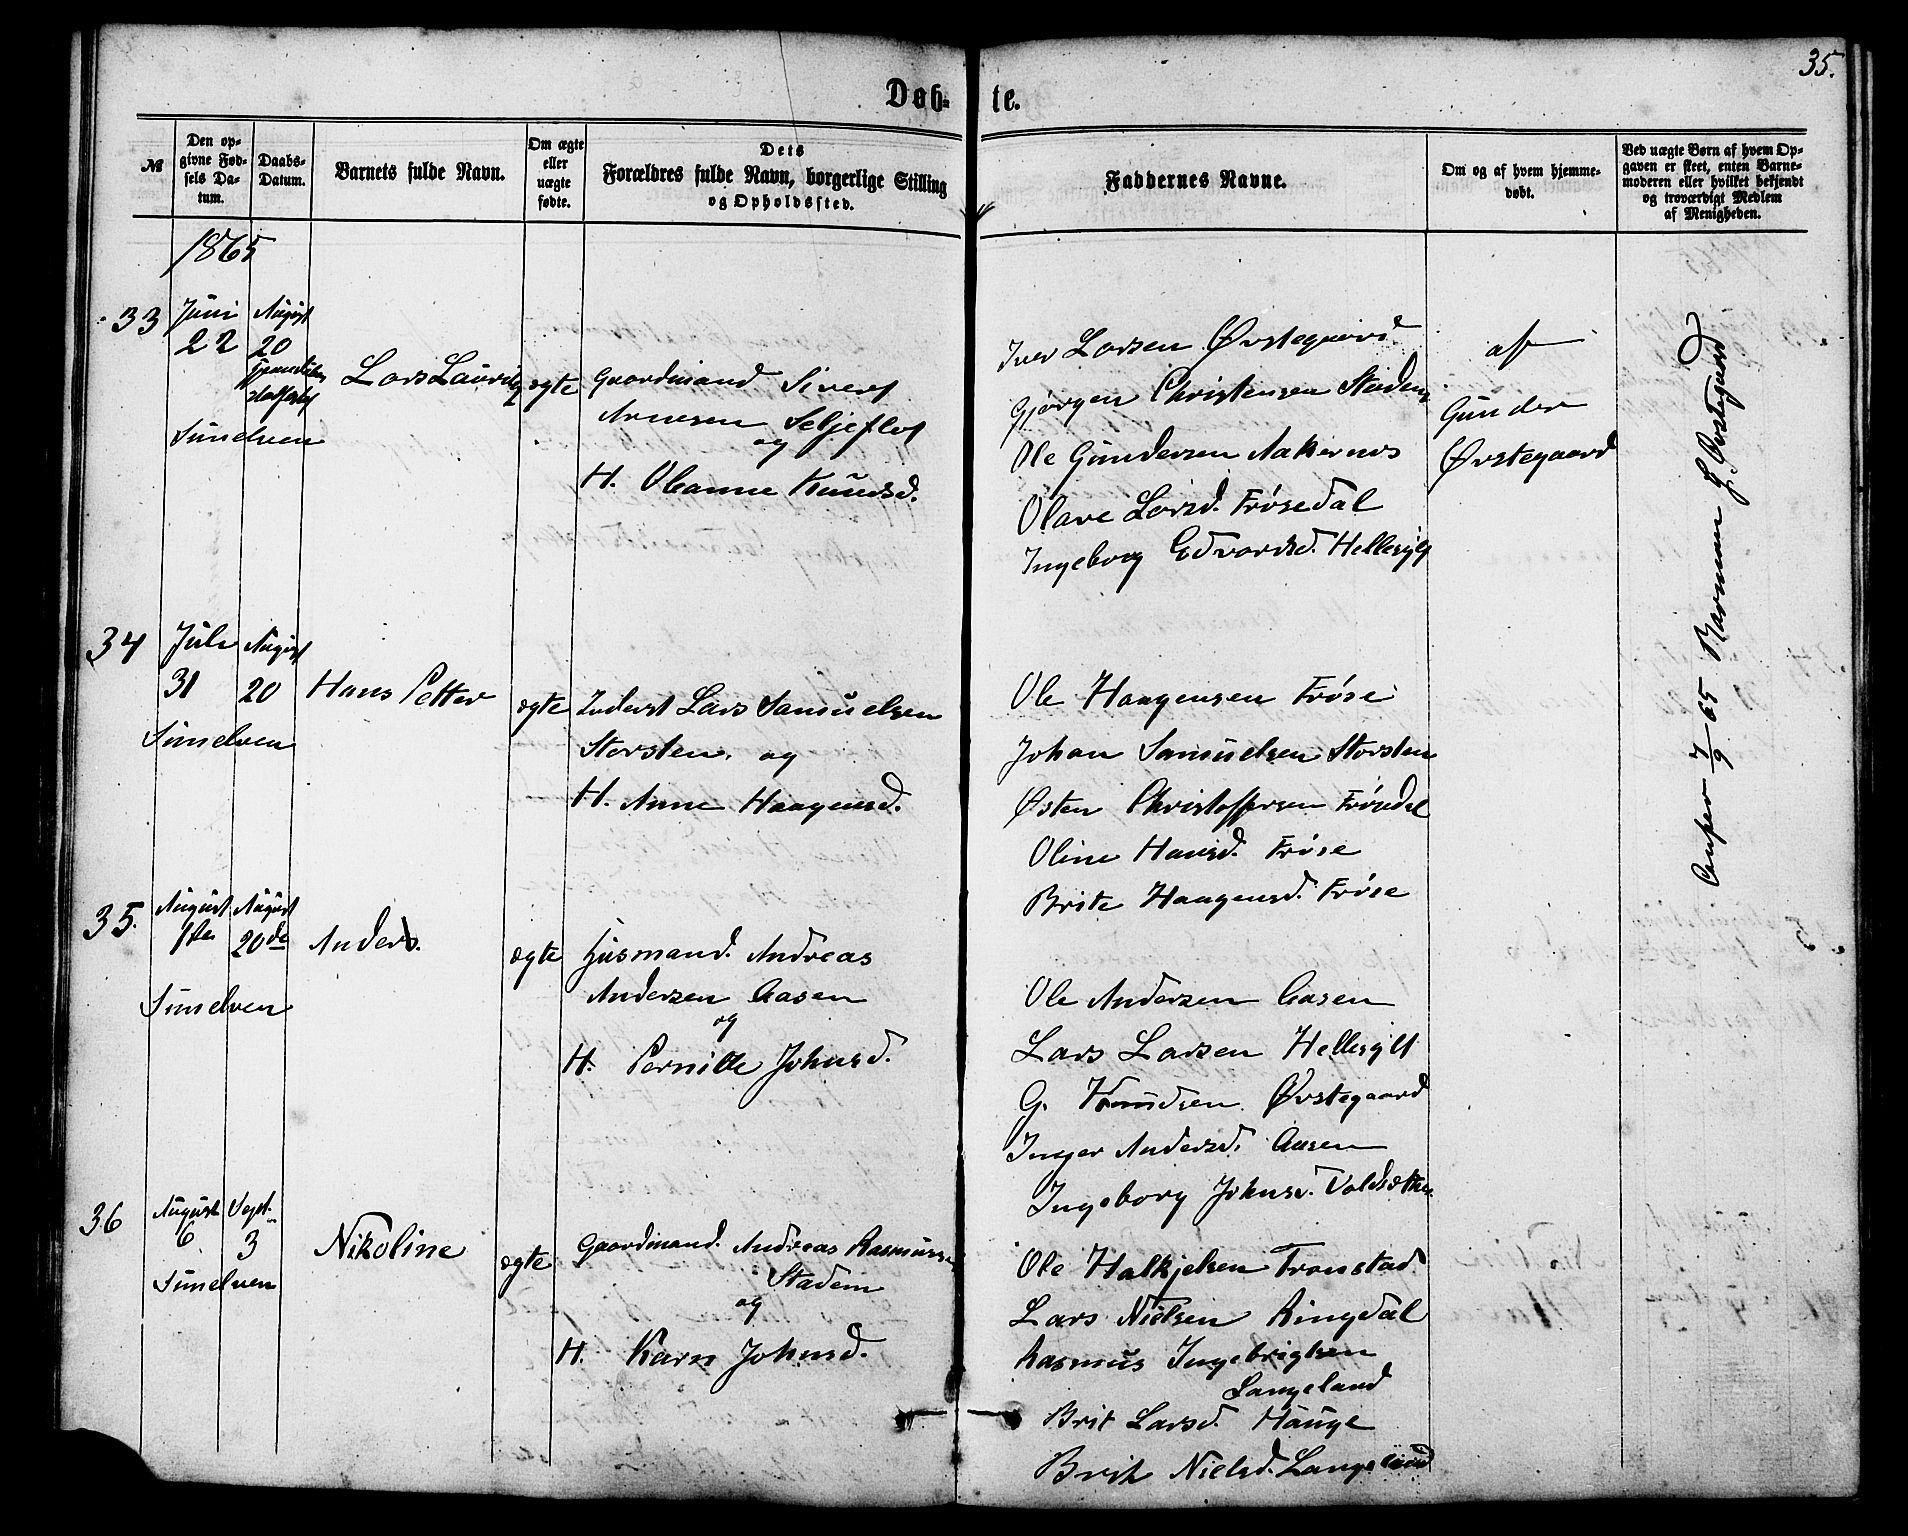 35.
Døb- te.
№
Den op-
givne Fød-
sels Da-
tum.
Daabs-
Datum.
Barnets fulde Navn.
Om ægte
eller
uægte
fødte.
Dets
Forældres fulde Navn, borgerlige Stilling
og Opholdssted.
Faddernes Navne.
Om og af hvem hjemme-
døbt.
Ved uægte Børn af hvem Op-
gaven er skeet, enten Barne-
moderen eller hvilket bekjendt
og troværdigt Medlem
af Menigheden.
1865
33
Juni
22
August
20
stadfæstet
Sunelven
Lars Laurits
ægte
Gaardmand Sivert
Arnesen Seljeflot
og
H. Olianne Knudsd.
Iver Larsen Østegaard
Gjørgen Christensen Stadem
Ole Gundersen Aakernes
Olave Larsd. Frøsedal
Ingeborg Edvardsd. Hellesylt
af
Gunder
Østegaard
34
Juli
31
August
20
Sunelven
Hans Petter
ægte
Inderst Lars Samuelsen
Storsten. og
H. Anne Haagensd.
Ole Haagensen Frøse
Johan Samuelsen Storsten
Østen Christoffersen Frøsedal
Oline Hansd. Frøse
Brite Haagensd. Frøse
35.
August
1ste
August
20de
Sunelven
Anders.
ægte
Husmand. Andreas
Andersen Aasen
og
H. Pernille Johnsd.
Ole Andersen Aasen
Lars Larsen Hellesylt
G. Knudsen Østegaard
Inger Andersd. Aasen
Ingeborg Johnsd. Voldsæther
36
August
6
Sept.
3
Sunelven
Nikoline
ægte
Gaardmand. Andreas Rasmussen
Stadem
og
H. Karn Johnsd.
Ole Halkjelsen Tronstad
Lars Nielsen Ringdal
Rasmus Ingebrigtsen
Langeland
Brit Larsd. Hauge
Brit Nielsd. Langeland
7/9 65 Barman G. Østegaard